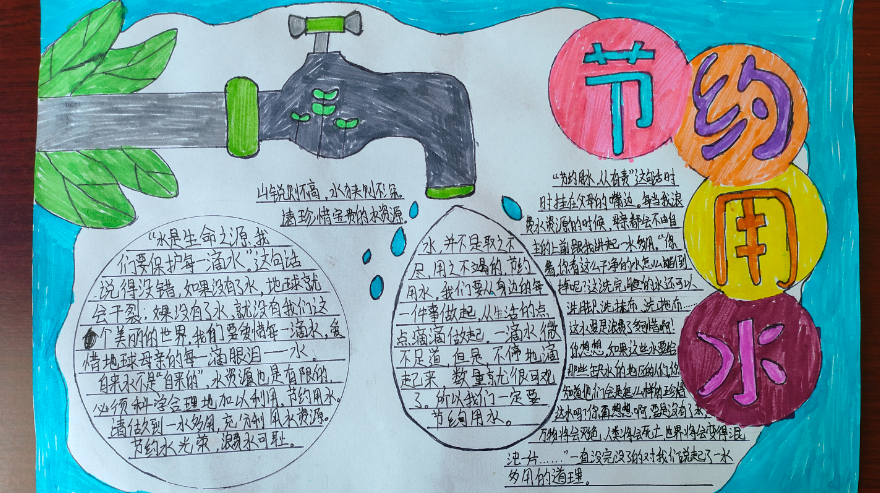 节约用水
山锐则不高，水狭则不深
请珍惜宝贵的水资源
“水是生命之源，我
们要保护每一滴水”这句话
说得没错，如果没有了水，地球就
会干裂；如果没有了水，就没有我们这
个美丽的世界，我们要爱惜每一滴水，爱
惜地球母亲的每一滴眼泪——水。
自来水不是“自来的”，水资源也是有限的，
必须科学合理地加以利用，节约用水。
请做到一水多用，充分利用水资源。
节约水光荣，浪费水可耻。
水，并不是取之不
尽，用之不竭的，节约
用水，我们要从身边的每
一件事做起，从生活的点
点滴滴做起，一滴水微
不足道，但是，不停地滴
起来，数量就很可观
了。所以我们一定要
节约用水。
“节约用水，从有我”这句话时
时挂在
的嘴边。每当我浪
费水资源的时候，
都会不由自
主的上前跟我讲起一水多用。“你
看，你看这么干净的水怎么能倒
掉呢？这洗完
的水还可以
洗
，洗抹布，洗拖布……
这水要是浪费了多可惜啊！
你想想，如果这些水要给
那些缺水的地区的人们，你
知道他们会是怎么样的珍惜
这水吗？你再想想，啊，要是没有了水，
万物将会灭绝，人类将会死亡，世界将会变得混
沌一片……”一直没完没了的对我们说起了一水
多用的道理。